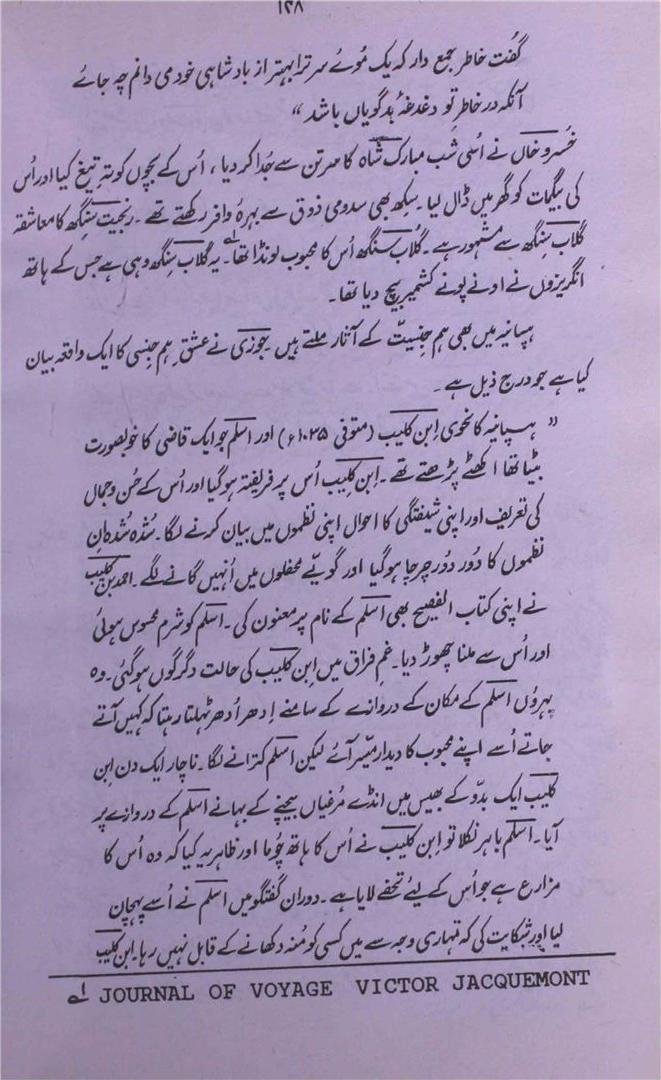 ۱۲۸
گفت خاطر جمع دار کہ یک موئے سر ترا بہتر از بادشاہی خود می دانم چہ جائے
آنکہ در خاطرِ تو دغدغۂ بدگویاں باشد“
خُسرو خاں نے اُسی شب مبارک شاہ کا سر تن سے جُدا کر دیا ، اُس کے بچوں کو تہِ تیغ کیا اور اُس
کی بیگمات کو گھر میں ڈال لیا۔ سکھ بھی سدومی ذوق سے بہرۂ وافر رکھتے تھے ۔ رنجیت سنگھ کا معاشقہ
گلاب سنگھ سے مشہور ہے ۔ گلاب سنگھ اُس کا محبوب لونڈا تھا۱؎۔ یہ گلاب سنگھ وہی ہے جس کے ہاتھ
انگریزوں نے اونے پونے کشمیر بیچ دیا تھا۔
ہسپانیہ میں بھی ہم جنسیّت کے آثار ملتے ہیں جوزی نے عشقِ ہم جنسی کا ایک واقعہ بیان
کیا ہے جو درج ذیل ہے ۔
” ہسپانیہ کا نحوی اِبن کلیب (متوفی ۱۰۳۵ء) اور اسلم جو ایک قاضی کا خوبصورت
بیٹا تھا اکٹھے پڑھتے تھے ۔ اِبن کلیب اُس پر فریفتہ ہو گیا اور اُس کے حُسن و جمال
کی تعریف اور اپنی شیفتگی کا احوال اپنی نظموں میں بیان کرنے لگا۔ شُدہ شُدہ اِن
نظموں کا دُور دُور چرچا ہو گیا اور گویّے محفلوں میں اُنہیں گانے لگے ۔ احمد بن کلیب
نے اپنی کتاب الفصیح بھی اسلم کے نام پر معنون کی۔ اسلم کو شرم محسوس ہوئی
اور اُس سے ملنا چھوڑ دیا۔ غمِ فراق میں اِبن کلیب کی حالت دگرگوں ہو گئی۔ وہ
پہروں اسلم کے مکان کے دروازے کے سامنے اِدھر اُدھر ٹہلتا رہتا کہ کہیں آتے
جاتے اُسے اپنے محبوب کا دیدار میّسر آئے لیکن اسلم کترانے لگا۔ ناچار ایک دن ابن
کلیب ایک بدّو کے بھیس میں انڈے مُرغیاں بیچنے کے بہانے اسلم کے دروازے پر
آیا۔ اسلم باہر نکلا تو اِبن کلیب نے اُس کا ہاتھ چُوما اور ظاہر یہ کیا کہ وہ اُس کا
مزارع ہے جو اُس کے لیئے تحفے لایا ہے ۔ دورانِ گفتگو میں اسلم نے اُسے پہچان
لیا اور شکایت کی کہ تمہاری وجہ سے میں کسی کو مُنہ دکھانے کے قابل نہیں رہا۔ ابن کلیب
۱؎ JOURNAL OF VOYAGE VICTOR JACQUEMONT